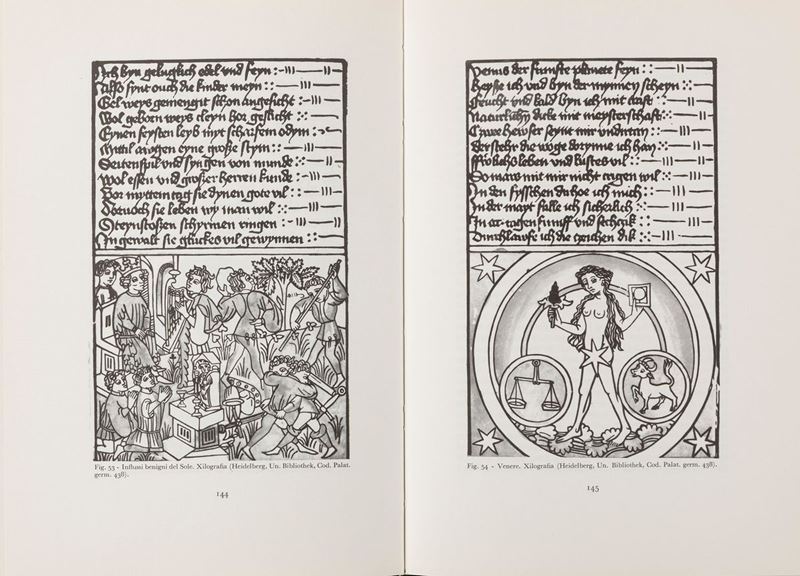 Ich byn geluglich edel vnd feyn
Also synt ouch die kinder meyn
Gel weys gemengit schon angesicht
Wol geborn weys cleyn hor geslicht
Eynen feysten leyb mit scharfem odym
eyne große styrn
Seitenspil vnd syngen von munde
Wol essen vnd großer herren kunde
Vor mittem tag sie dynen gote vil
Dornoch sie leben wy man wil
Steynstoßen schyrmen ringen
In gewalt sie gluckes vil gewynnen
Fig. 53 - Influssi benigni del Sole. Xilografia (Heidelberg, Un. Bibliothek, Cod. Palat.
germ. 438).
144
Venus der funfte planete feyn
Heyße ich vnd byn der mynnen scheyn
Feucht vnd kald byn ich mit craft
Naturlich dicke mit meysterschaft
Czwe hewser seynt mir vndirtan
Der stehr die woge dorynne ich han
leben vnd lustes vil
So mars mit mir nicht crigen wil
In den fysschen ich mich
In der mayt falle ich sicherlich
In tagen funff vnd
Durchlawfe ich die czeichen
Fig. 54 - Venere. Xilografia (Heidelberg, Un. Bibliothek, Cod. Palat. germ. 438).
145